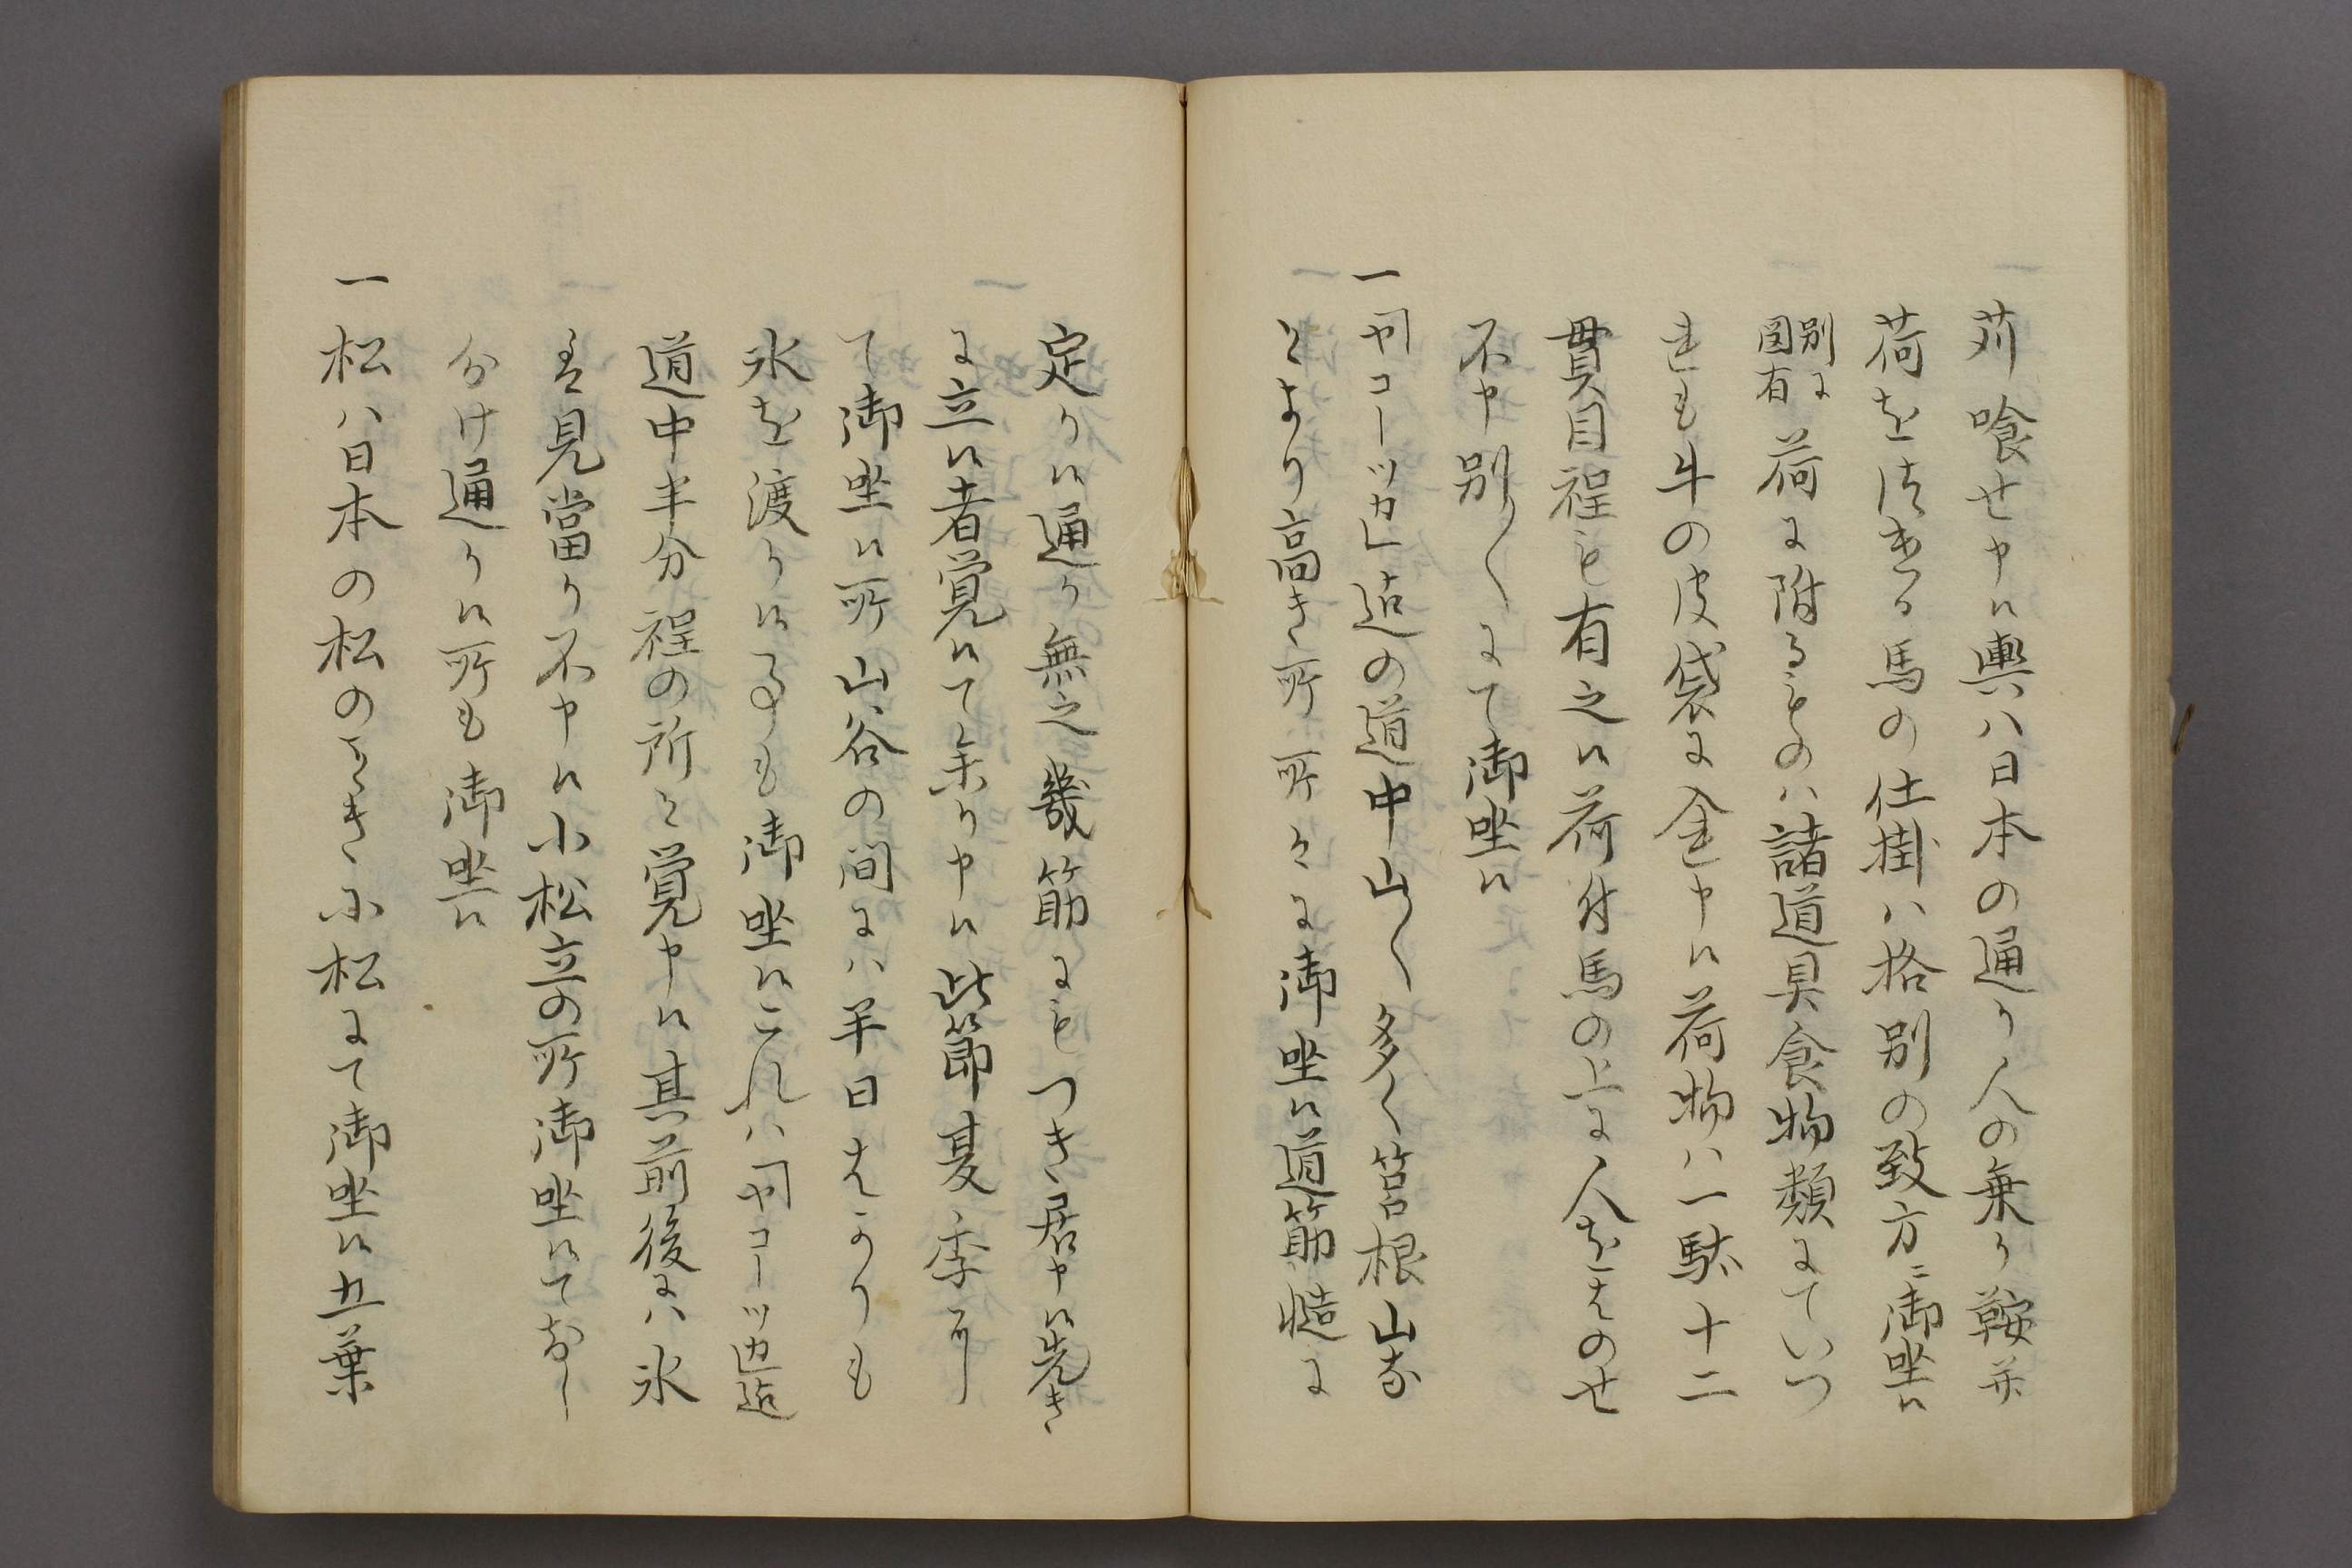 苅喰せ申候輿ハ日本の通り人の乗り鞍并
荷を付ける馬の仕掛ハ格別の致方ニ御坐候
別に図有 荷に附るものハ諸道具食物類にていつ
れも牛の皮袋に入れ申候荷物ハ一駄十二
貫目程も有之候荷付馬の上に人をはのせ
不申別〳〵にて御坐候
一ヤコーツカ迄の道中山〳〵多く筥根山な
とより高き所ハ所々に御坐候道筋慥に
定り候通り無之幾筋にもつき居申候先き
に立候者覚候て参り申候此節夏季に
て御坐候所山谷の間にハ半日はかりも
氷を渡り候事も御坐候これハヤコーツカ迄
道中半分程の所と覚申候其前後にハ氷
は見當り不申候小松立の所御坐候てなし
分け通り候所も御坐候
一松ハ日本の松の如き小松にて御坐候五葉